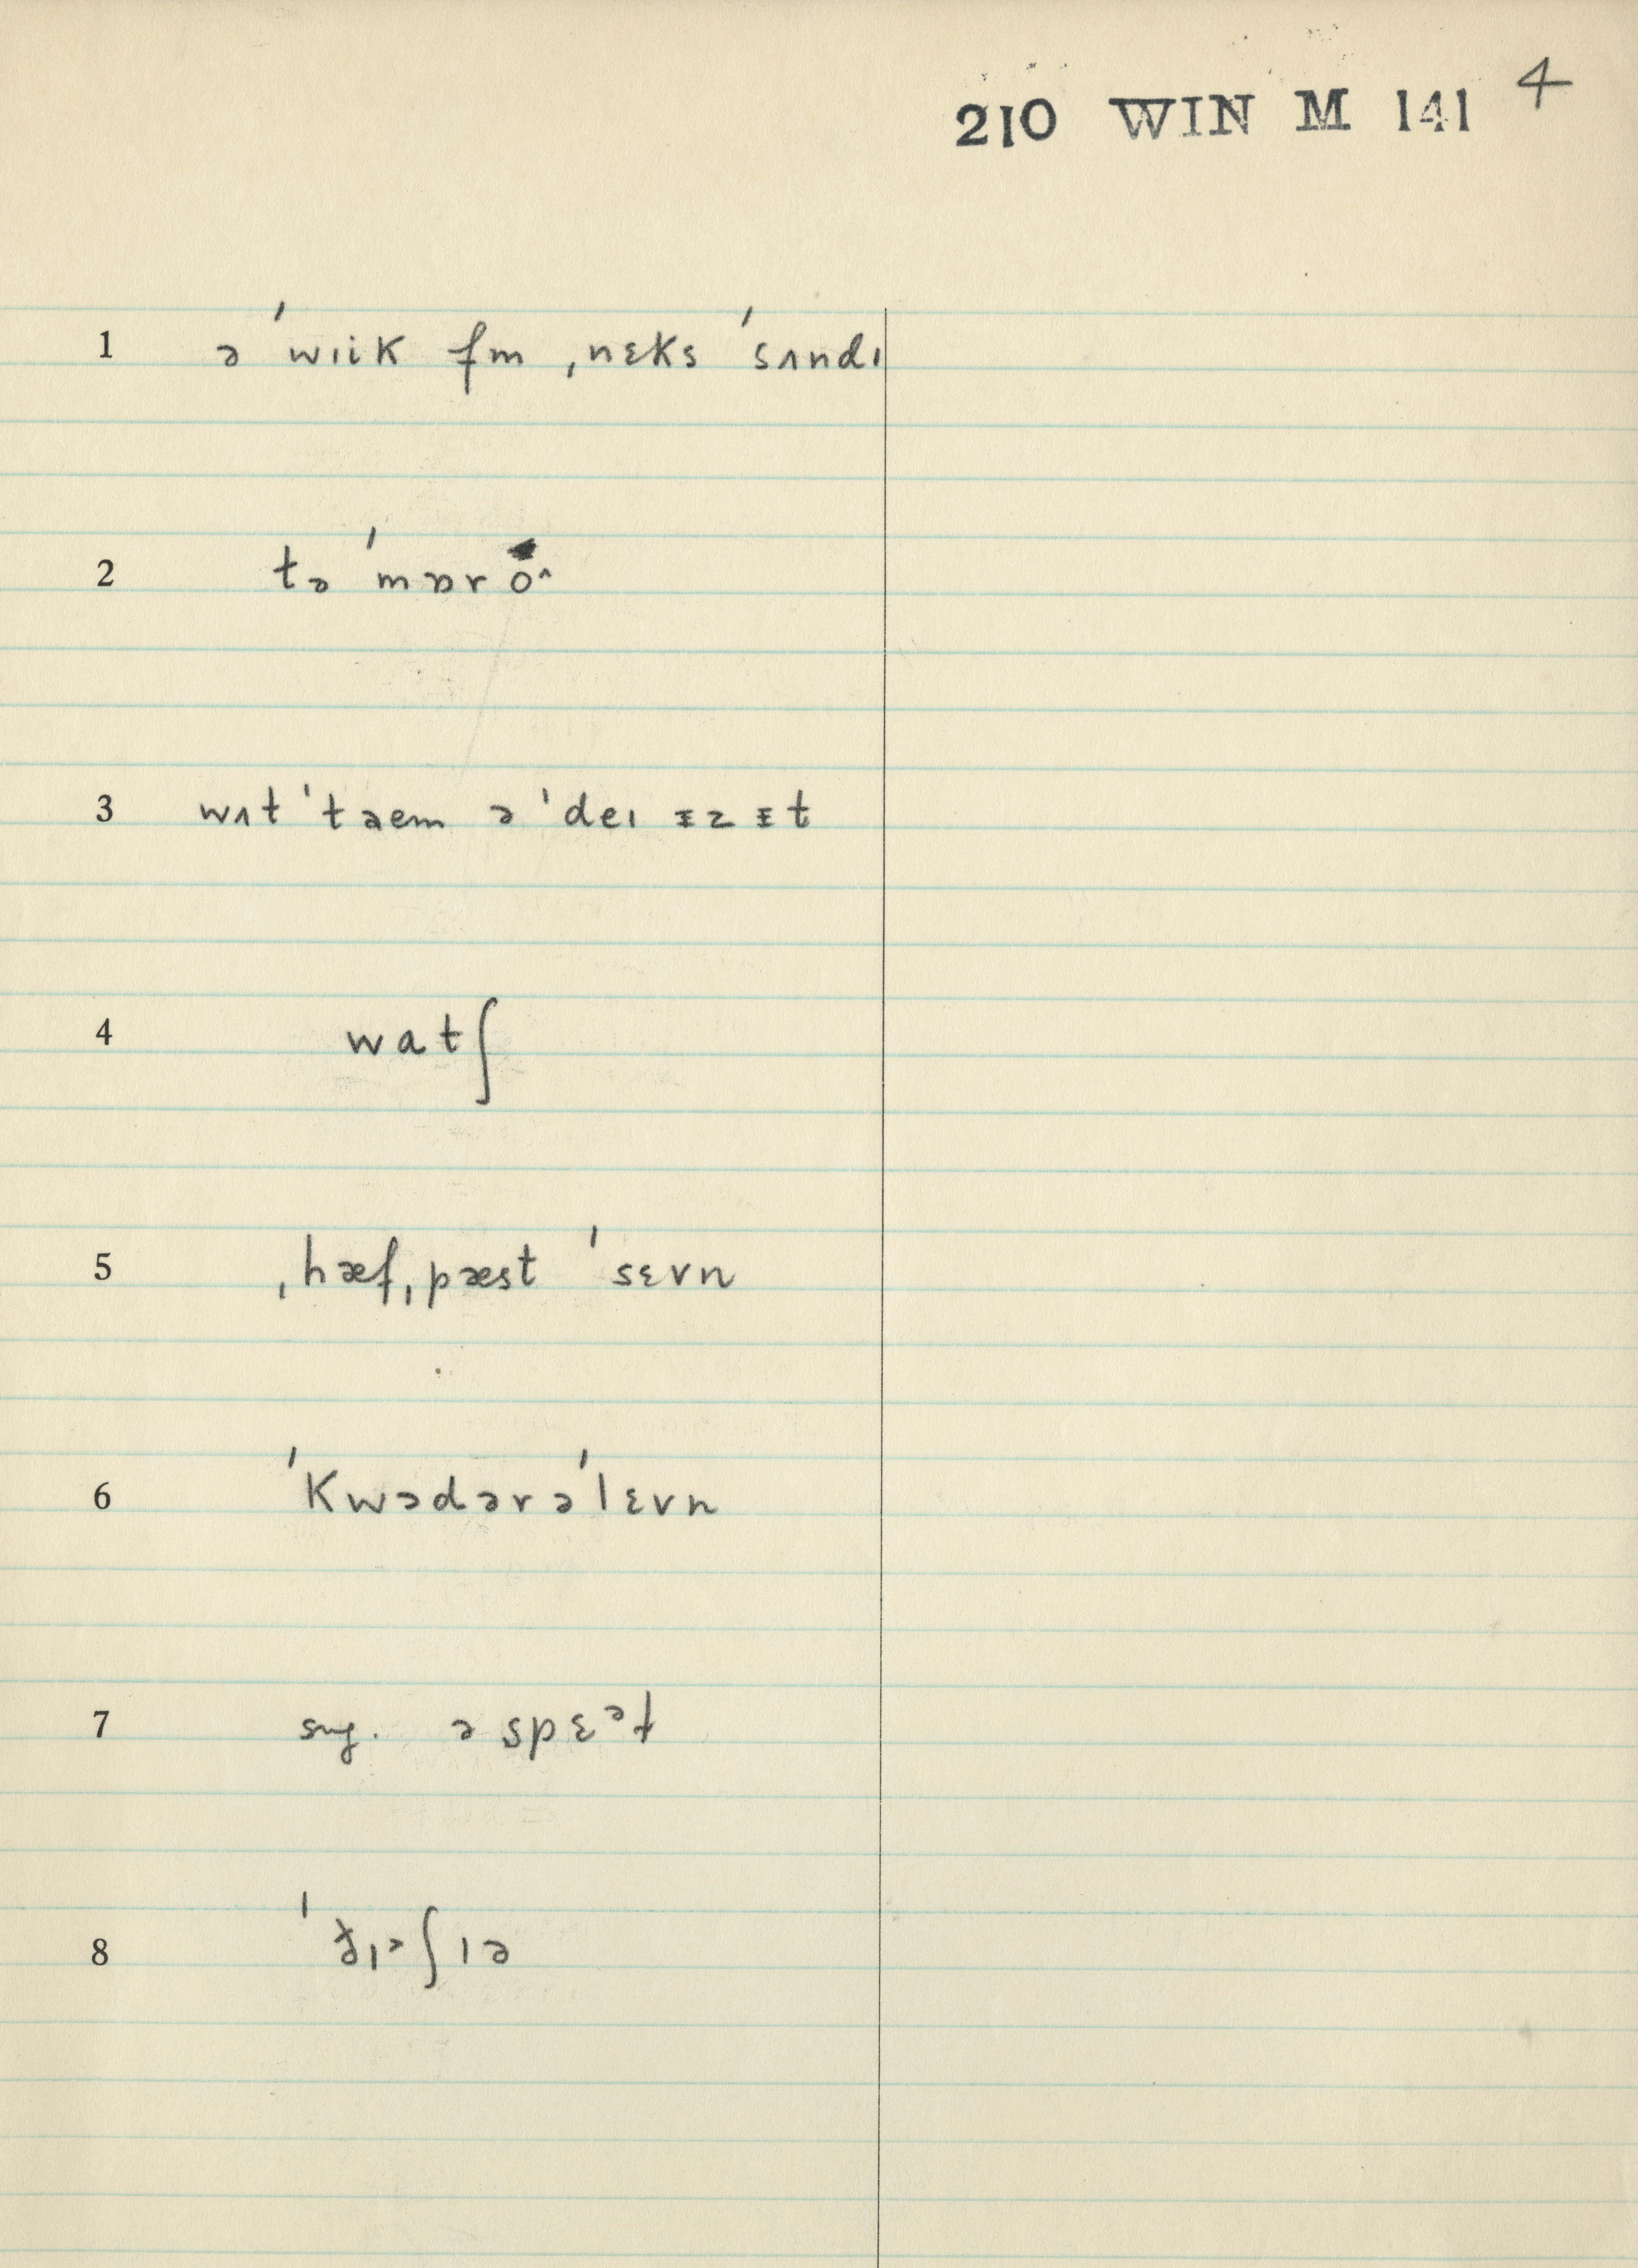 210 WIN M 141 4
1 ə ˈwɪik fm ˌnɛks ˈsʌndɪ
2 tə ˈmɒr o^
3 wʌt ˈtaem ə ˈdeɪ ɪz ɪt
4 watʃ
5 ˌhæfˌpæst ˈsɛvn
6 ˈkwɔdərəˈlɛvn
7 sng. ə spɛᵊt
8 ʃɪə